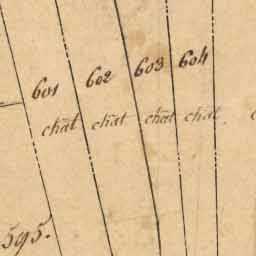 601 602 603 604
chat chat chat chat
595.